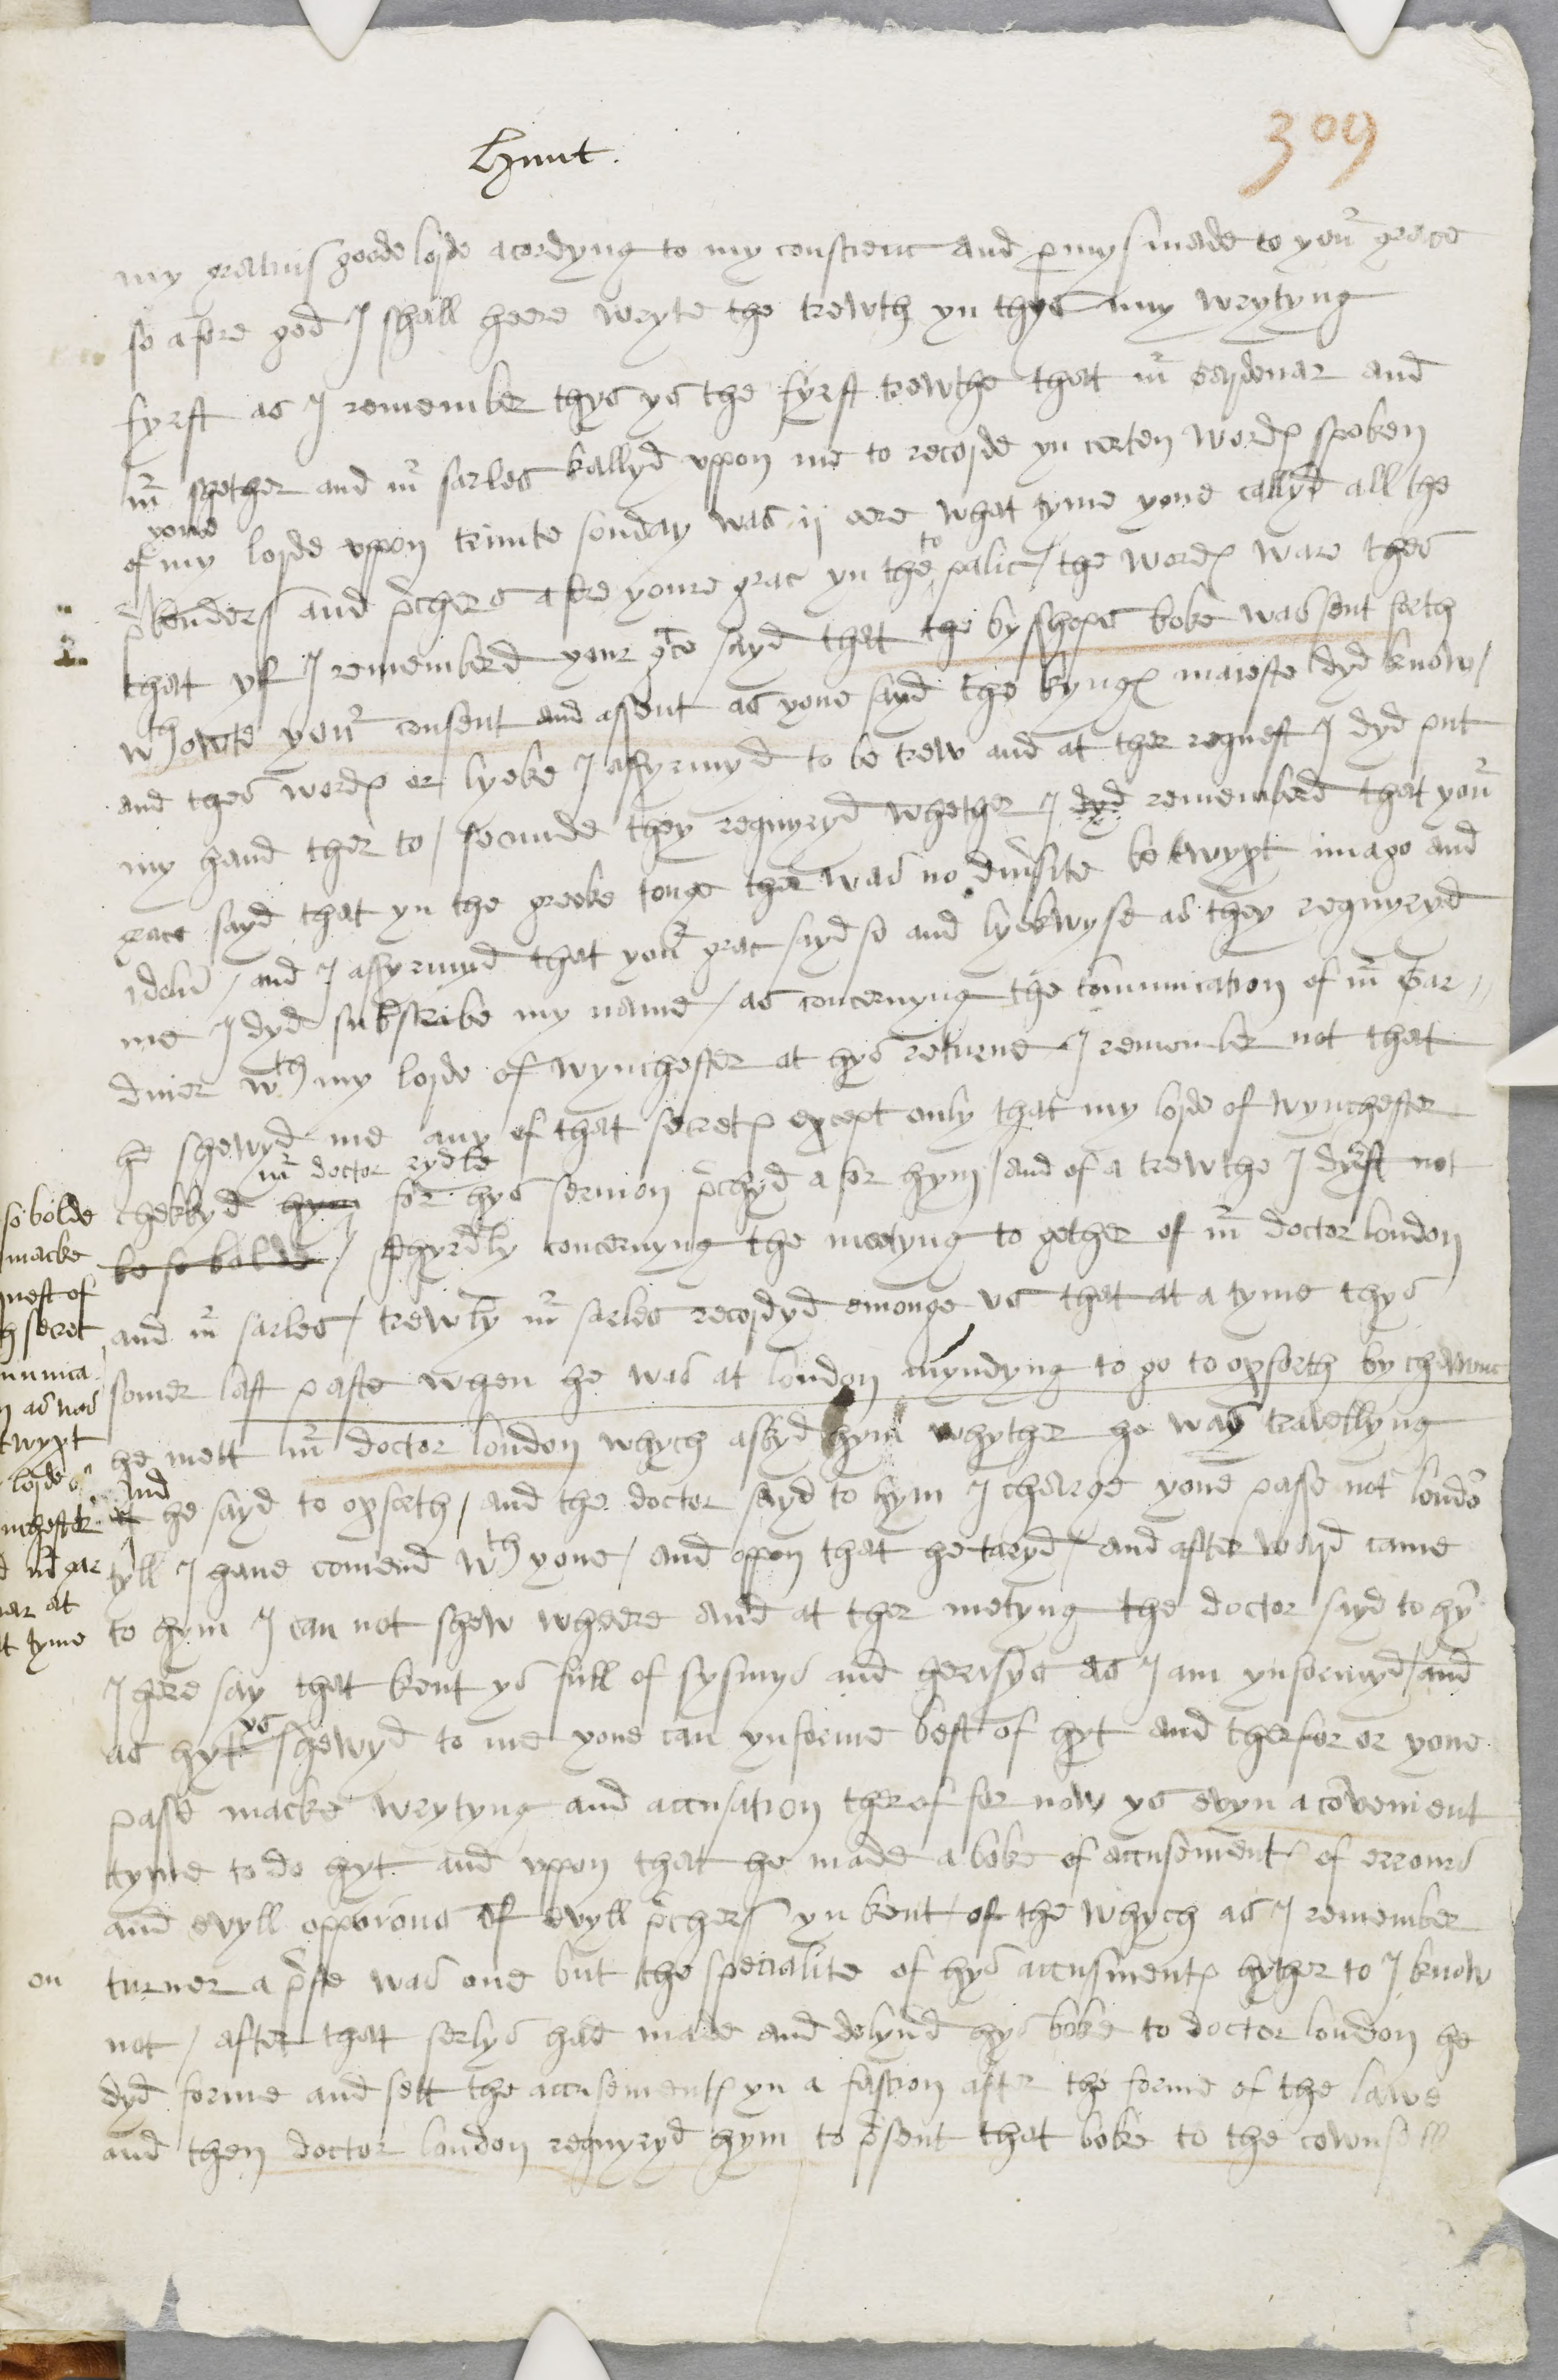 Hunt.
309
my gratius goode lorde acordyng to my conscienc and pmys made to your grace
so afore god I shall heere wryte the trewth yn thys my wrytyng
fyrst as I remember thys ys the fyrst trewthe that mr gardenar and
mr shether and mr sarles kallyd uppon me to recorde yn certen words spoken
youe
of my lorde uppon trinite sonday was ij eere what tyme youe callyd all the
to
pbenders and pchers afore youre grac yn the palic / the words ware thes
that yf I rememberd your gce sayd that the bysshopes boke was sent forth
wth owte your consent and assent as youe sayd the kyngs maieste dyd know /
and thes words or lyeke I affyrmyd to be trew and at ther request I dyd put
my hand ther to / secunde they requyryd whether I dyd rememberd that your
grace sayd that yn the greeke tonge ther was no divsite betwyxt imago and
idolu / and I affyrmyd that your grac sayd so and lyekwyse as they requyryd
me I dyd subscribe my name / as concernyng the communication of mr Gar
diner wth my lorde of wynchester at hys returne I remember not that
he shewyd me any of that secrets except only that my lorde of wynchester
mr doctor rydle
chekkyd hym for hys sermon pchyd afor hym / and of a trewthe I dyrst not
be so bolde / thyrdly concernyng the metyng to gether of mr doctor london
and mr sarles / trewly mr sarles recordyd emonge us that at a tyme thys
somer last paste when he was at london myndyng to go to oxforth by chawnc
he mett mr doctor london whych askyd hym whyther he was travellyng
and
he sayd to oxforth / and the doctor sayd to hym I charge youe passe not londo
tyll I have comend wth youe / and oppon that he taryd / and after ward came
to hym I can not shew wheere and at ther metyng the doctor sayd to hy
I here say that kent ys full of sysmys and herisys as I am ynformyd / and
ys
as hyt shewyd to me youe can ynforme best of hyt and therfor or youe
passe macke wrytyng and accusation therof for now ys evyn a covenient
tyme to do hyt and uppon that he made a boke of accusements of errours
and evyll opporons of evyll pchers yn kent of the whych as I remember
turner a pste was one but the specialite of hys accusments hyther to I know
not / after that serlys had made and delyvd hys boke to doctor london he
dyd forme and sett the accusements yn a fascion after the forme of the lawe
and then doctor london requyryd hym to psent that boke to the cownsell
so bolde
macke
quest of
secret
munica
as was
twyxt
lorde
nchester
gar
ar at
t tyme
on